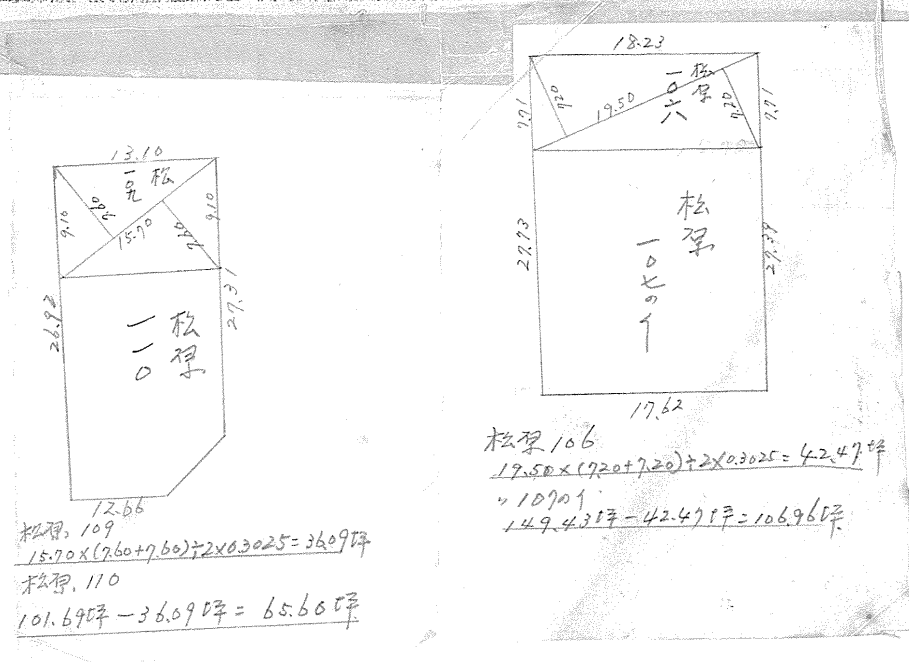 13.10
松
一〇九
9.10
7.60
15.70
7.60
9.10
26.92
27.31
松原
一一〇
12.66
松原, 109
15.70×(7.60+7.60)÷2×0.3025=36.09坪
松原, 110
101.69坪-36.09坪= 65.60坪
18.23
松原
一〇六
7.71
7.20
19.50
7.20
7.71
27.73
27.39
松原
一〇七のイ
17.62
松原106
19.50×(7.20+7.20)÷2×0.3025=42.47坪
〃107のイ
149.43坪-42.47坪=106.96坪